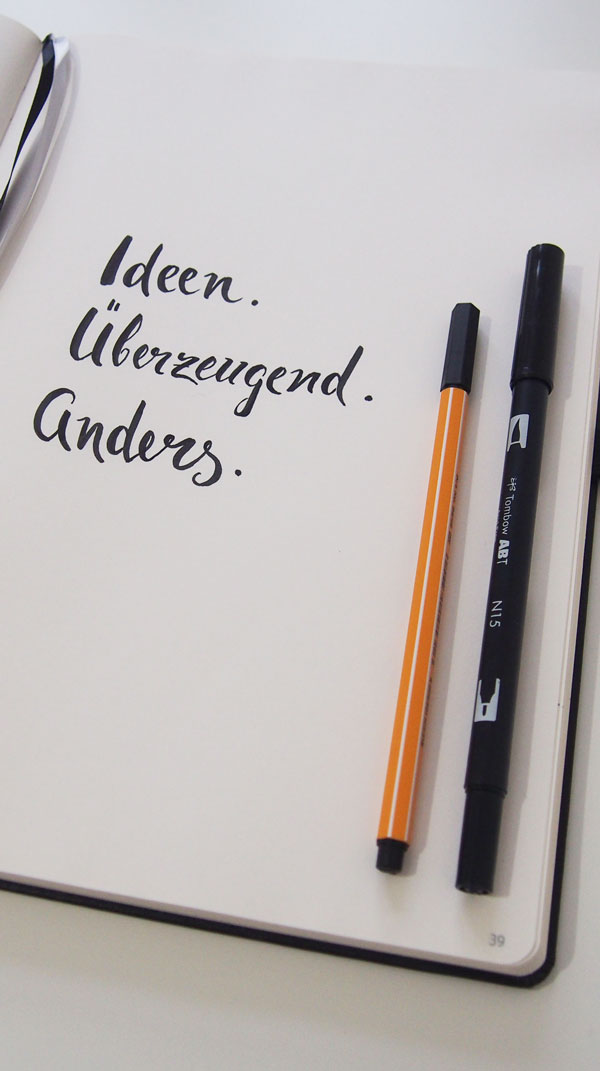 Ideen.
Überzeugend.
Anders.
Tombow ABT
N15
39